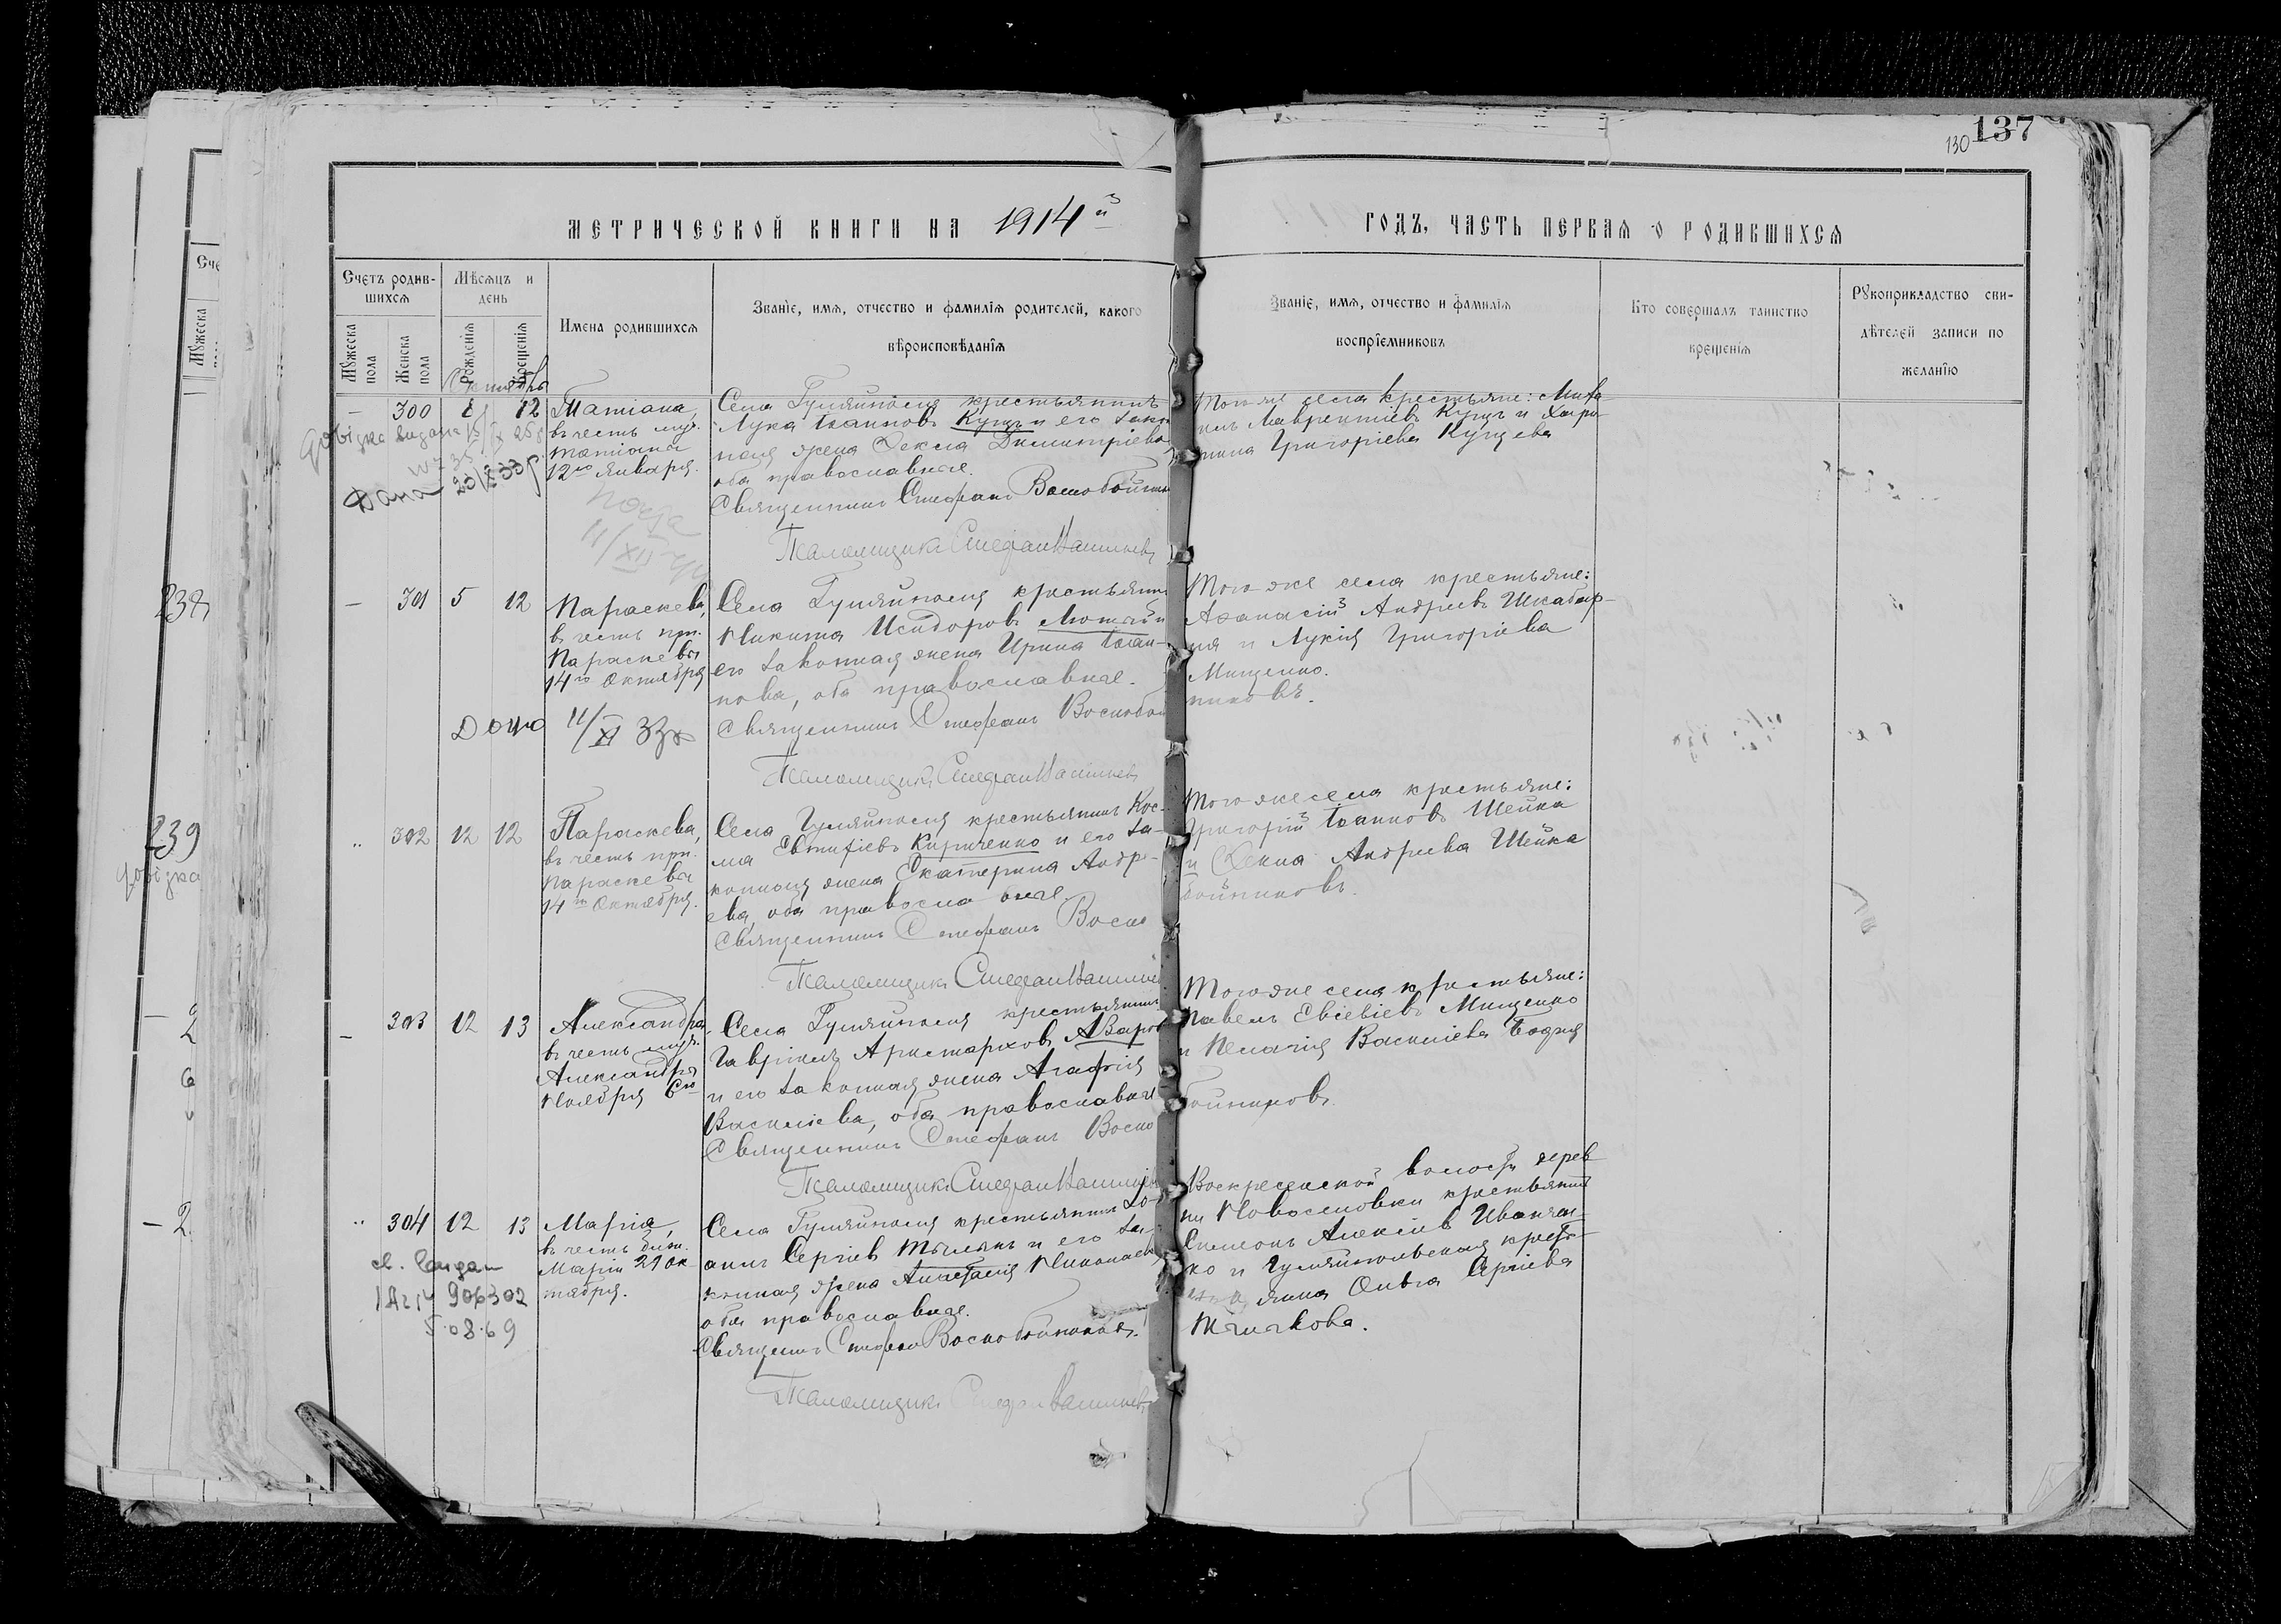 137
130
МЕТРИЧЕСКОЙ КНИГИ НА 1914й ГОДЪ, ЧАСТЬ ПЕРВАЯ О РОДИВШИХСЯ
Счетъ родив-
шихся
Мѣсяцъ и
день
Мужеска
пола
Женска
пола
Рожденія
Крещенія
Имена родившихся
Званіе, имя, отчество и фамилія родителей, какого
вѣроисповѣданія
Званіе, имя, отчество и фамилія
воспріемниковъ
Кто совершалъ таинство
крещенія
Рукоприкладство сви-
дѣтелей записи по
желанію
Октябрь
300 12
Татіана,
въ честь муч.
Татіаны
12го Января.
Села Гуляйполя крестьянинъ
Лука Іоанновъ Куцъ и его закон
ная жена Димитріева
оба православные.
Священникъ Стефанъ
Псаломщикъ Стефанъ
Того же села крестьяне: Миха
илъ Лаврентіевъ Куцъ и Хари
тина Григоріева Куцева
довідка видана
Дана
301 5 12
Параскева,
въ честь прп.
Параскевы
14го Октября
Села Гуляйполя крестьянин
Никита Исидоровъ Лютый и
его законная жена Ирина Іоан-
нова, оба православные.
Священникъ Стефанъ Воскобой
Псаломщикъ Стефанъ
Того же села крестьяне:
Аѳанасій Андреевъ Шкабар-
ня и Лукія Григоріева
Мищенко.
никовъ.
11/XI 33р
302 12 12
Параскева,
въ честь прп.
Параскевы
14го Октября.
Села Гуляйполя крестьянинъ Кос-
ма Евтихіевъ Кириченко и его за-
конная жена Екатерина Андре-
ева, оба православные.
Священникъ Стефанъ Воско
Псаломщикъ Стефанъ
Того же села крестьяне:
Григорій Іоанновъ Шейка
и Андреева Шейка
бойниковъ.
303 12 13
Александра,
въ честь муч.
Александры
Ноября 6го
Села Гуляйполя крестьянинъ
Гавріилъ Аристарховъ
и его законная жена Агафія
Василіева, оба православные
Священникъ Стефанъ Воско
Псаломщикъ Стефанъ
Того же села крестьяне:
Павелъ Евсевіевъ Мищенко
и Пелагія Василіева
бойниковъ.
304 12 13
Марія,
въ честь
Маріи 29 Ок-
тября.
Села Гуляйполя крестьянинъ Іо-
аннъ Сергіевъ и его за-
конная жена Анастасія Николаев
оба православные.
Священникъ Стефанъ Воскобойниковъ.
Псаломщикъ Стефанъ
Воскресенской волости дерев
ни Новоселовки крестьянинъ
Симеонъ Алексіевъ Иванчен-
ко и Гуляйпольская крест-
янка Ольга Сергіева
5.08.69
238
239
довідка
2
6
2